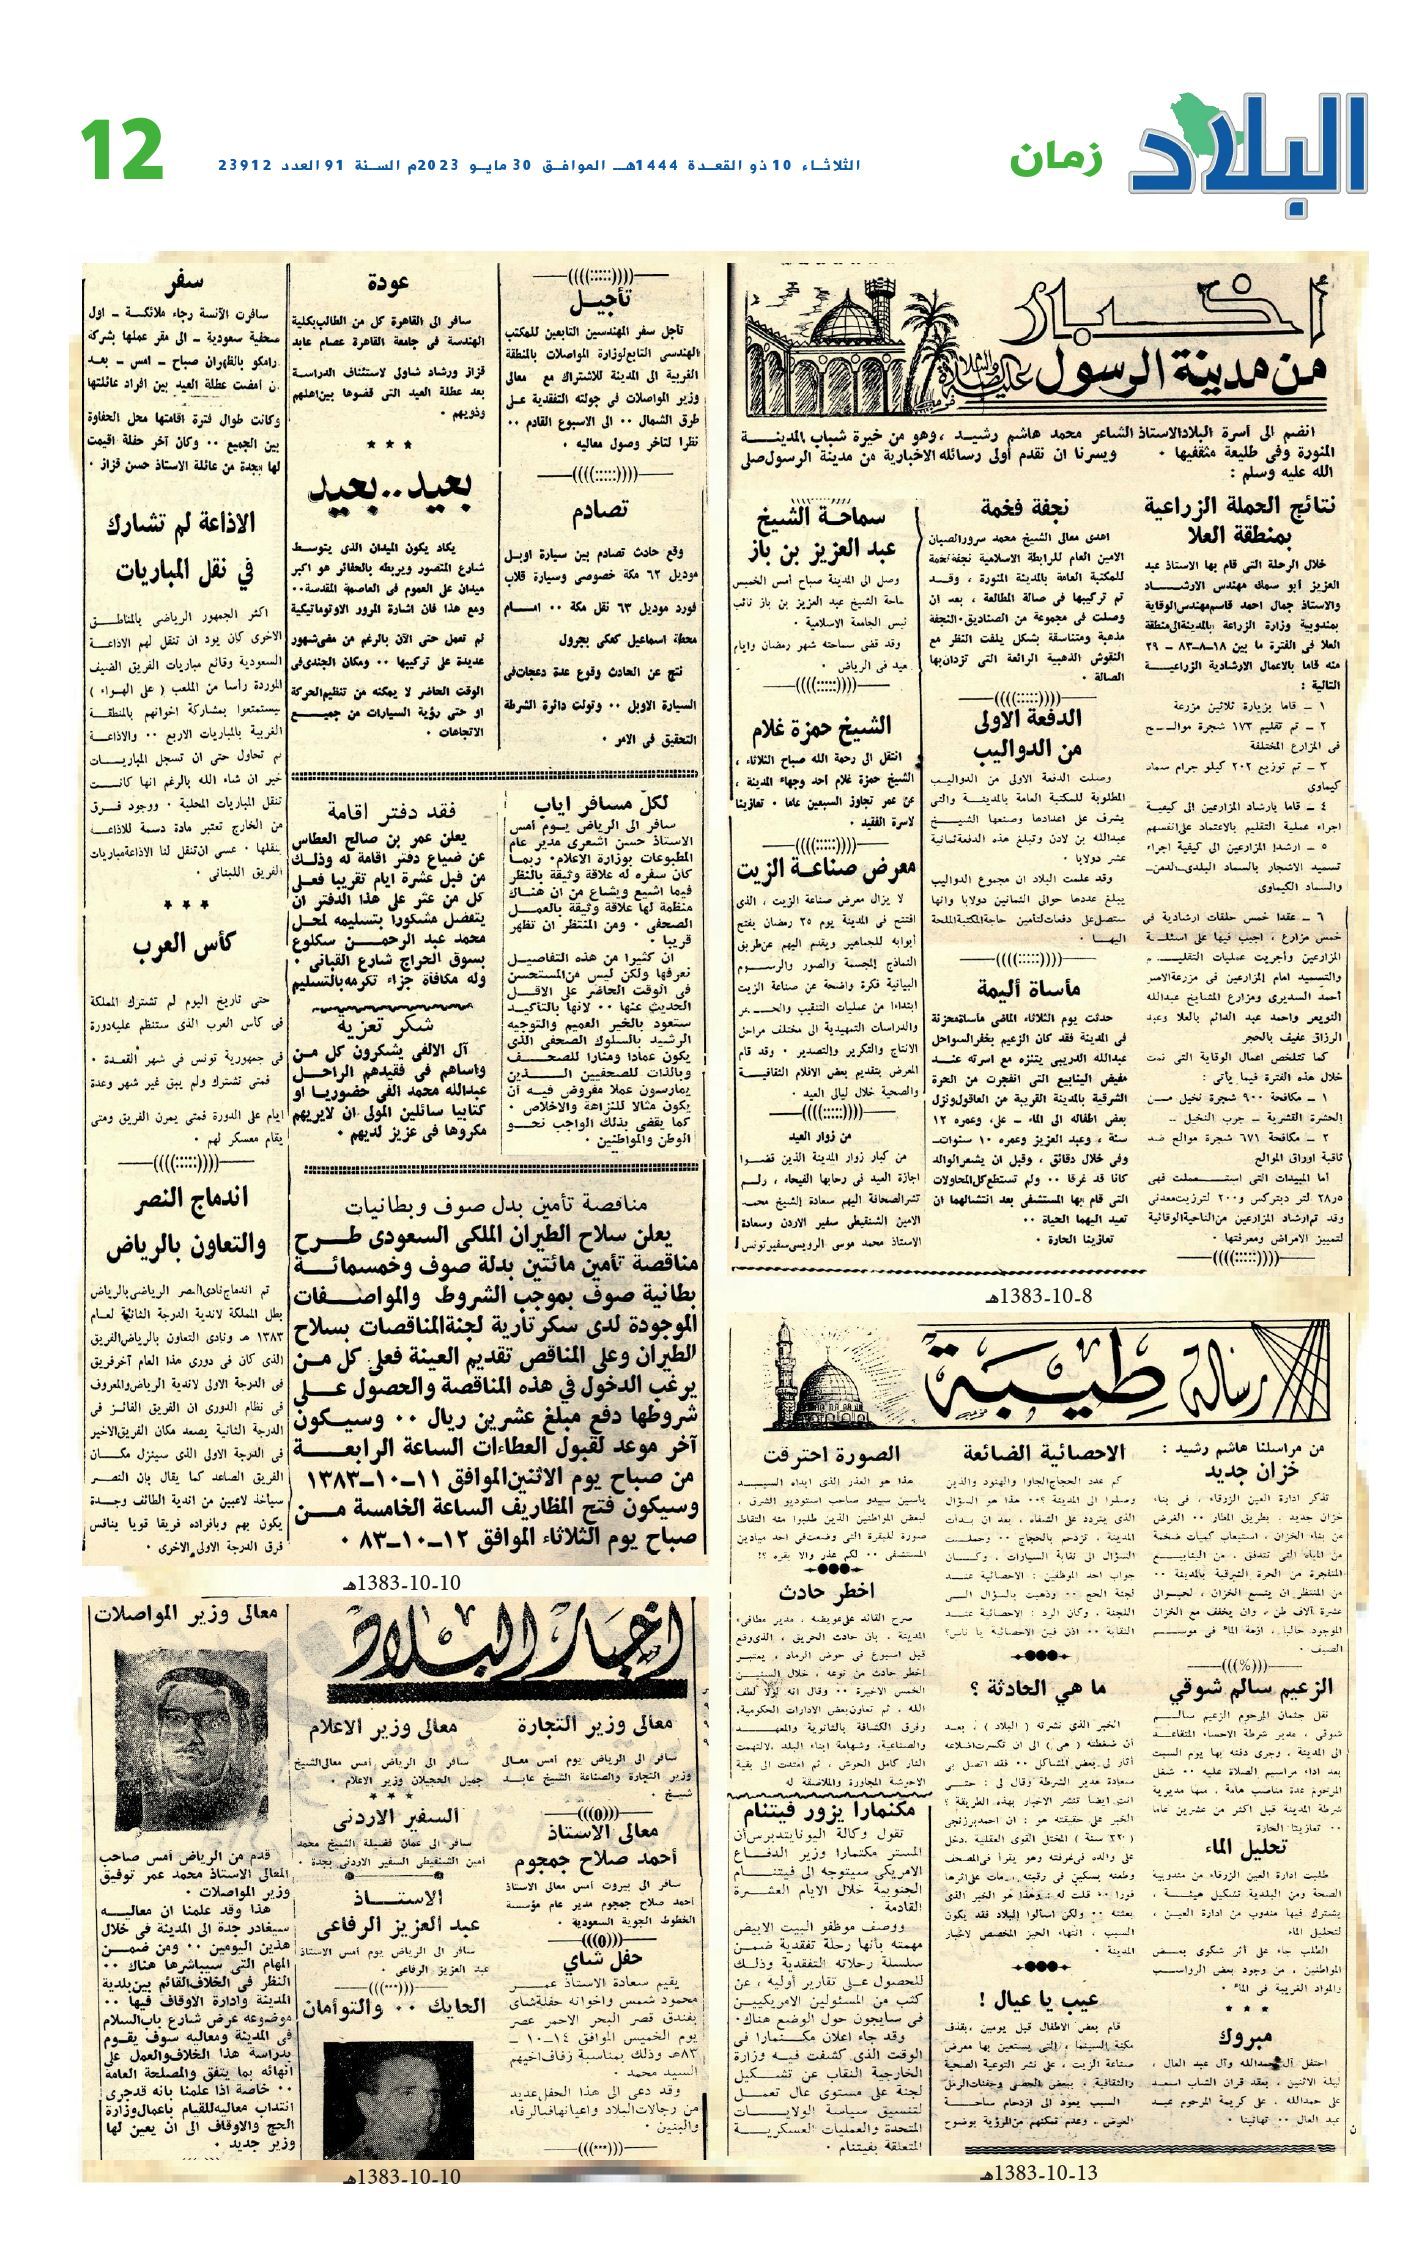 البلاد
زمان
الثلاثاء 10 ذو القعدة 1444هـ الموافق 30 مايو 2023م السنة 91 العدد 23912
12
أخبار
من مدينة الرسول
انضم الى أسرة البلاد الاستاذ الشاعر محمد هاشم رشيد ، وهو من خيرة شباب المدينة
المنورة وفى طليعة مثقفيها ٠ ويسرنا ان نقدم أولى رسائله الاخبارية من مدينة الرسول صلى
الله عليه وسلم :
نتائج الحملة الزراعية
بمنطقة العلا
خلال الرحلة التى قام بها الاستاذ عبد
العزيز أبو سمك مهندس الارشاد
والاستاذ جمال احمد قاسم مهندس الوقاية
بمندوبية وزارة الزراعة بالمدينة الى منطقة
العلا فى الفترة ما بين ١٨-٨-٨٣ - ٢٩
منه قاما بالاعمال الارشادية الزراعية
التالية :
١ - قاما بزيارة ثلاثين مزرعة
٢ - تم تقليم ١٧٣ شجرة موالح
فى المزارع المختلفة
٣ - تم توزيع ٢٠٢ كيلو جرام سماد
كيماوى
٤ - قاما بارشاد المزارعين الى كيفية
اجراء عملية التقليم بالاعتماد على انفسهم
٥ - ارشدا المزارعين الى كيفية اجراء
تسميد الاشجار بالسماد البلدى
والسماد الكيماوى
٦ - عقدا خمس حلقات ارشادية فى
خمس مزارع ، اجيب فيها على اسئلة
المزارعين وأجريت عمليات التقليم
والتسميد امام المزارعين فى مزرعة الامير
أحمد السديرى ومزارع المشايخ عبدالله
التويعر واحمد عبد الدائم بالعلا وعبد
الرزاق عفيف بالحجر
كما تتلخص اعمال الوقاية التى تمت
خلال هذه الفترة فيما يأتى :
١ - مكافحة ٩٠٠ شجرة نخيل من
الحشرة القشرية - جرب النخيل ..
٢ - مكافحة ٦٧١ شجرة موالح ضد
ثاقبة اوراق الموالح
أما المبيدات التى استعملت فهى
وقد تم ارشاد المزارعين من الناحية الوقائية
لتمييز الامراض ومعرفتها ٠
نجفة فخمة
اهدى معالى الشيخ محمد سرور الصبان
الامين العام للرابطة الاسلامية نجفة فخمة
للمكتبة العامة بالمدينة المنورة ، وقد
تم تركيبها فى صالة المطالعة ، بعد ان
وصلت فى مجموعة من الصناديق ، النجفة
مذهبة ومتناسقة بشكل يلفت النظر مع
النقوش الذهبية الرائعة التى تزدان بها
الصالة ٠
الدفعة الاولى
من الدواليب
وصلت الدفعة الاولى من الدواليب
المطلوبة للمكتبة العامة بالمدينة والتى
يشرف على اعدادها وصنعها الشيخ
عبدالله بن لادن وتبلغ هذه الدفعة ثمانية
عشر دولابا ٠
وقد علمت البلاد ان مجموع الدواليب
يبلغ عددها حوالى الثمانين دولابا وانها
ستصل على دفعات لتأمين حاجة المكتبة الملحة
اليها ٠
مأساة أليمة
حدثت يوم الثلاثاء الماضى مأساة محزنة
فى المدينة فقد كان الزعيم بخفر السواحل
عبدالله الدريبى يتنزه مع اسرته عند
مفيض الينابيع التى انفجرت من الحرة
الشرقية بالمدينة القريبة من العاقول ونزل
بعض اطفاله الى الماء - على، وعمره ١٢
سنة ، وعبد العزيز وعمره ١٠ سنوات -
وفى خلال دقائق ، وقبل ان يشعر الوالد
كانا قد غرقا ٠٠ ولم تستطع كل المحاولات
التى قام بها المستشفى بعد انتشالهما ان
تعيد اليهما الحياة ٠٠
تعازينا الحارة ٠
سماحة الشيخ
عبد العزيز بن باز
وصل الى المدينة صباح أمس الخميس
سماحة الشيخ عبد العزيز بن باز نائب
رئيس الجامعة الاسلامية ٠
وقد قضى سماحته شهر رمضان وايام
العيد فى الرياض ٠
الشيخ حمزة غلام
انتقل الى رحمة الله صباح الثلاثاء ،
الشيخ حمزة غلام احد وجهاء المدينة ،
عن عمر تجاوز السبعين عاما ٠ تعازينا
لاسرة الفقيد ٠
معرض صناعة الزيت
لا يزال معرض صناعة الزيت ، الذى
افتتح فى المدينة يوم ٢٥ رمضان يفتح
أبوابه للجماهير ويقدم اليهم عن طريق
النماذج المجسمة والصور والرسوم
البيانية فكرة واضحة عن صناعة الزيت
ابتداءا من عمليات التنقيب والحفر
والدراسات التمهيدية الى مختلف مراحل
الانتاج والتكرير والتصدير ٠ وقد قام
المعرض بتقديم بعض الافلام الثقافية
والصحية خلال ليالى العيد ٠
من زوار العيد
من كبار زوار المدينة الذين قضوا
اجازة العيد فى رحابها الفيحاء ، ولم
تشر الصحافة اليهم سعادة الشيخ محمد
الامين الشنقيطى سفير الاردن وسعادة
الاستاذ محمد موسى الرويسى سفير تونس
1383-10-8هـ
تأجيل
تأجل سفر المهندسين التابعين للمكتب
الهندسى التابع لوزارة المواصلات بالمنطقة
الغربية الى المدينة للاشتراك مع معالى
وزير المواصلات فى جولته التفقدية على
طرق الشمال ٠٠ الى الاسبوع القادم ٠٠
نظرا لتأخر وصول معاليه ٠
تصادم
وقع حادث تصادم بين سيارة اوبل
موديل ٦٣ مكة خصوصى وسيارة قلاب
فورد موديل ٦٣ نقل مكة ٠٠ امام
محطة اسماعيل كعكى بجرول
نتج عن الحادث وقوع عدة دعجات فى
السيارة الاوبل ٠٠ وتولت دائرة الشرطة
التحقيق فى الامر ٠
عودة
سافر الى القاهرة كل من الطالب بكلية
الهندسة فى جامعة القاهرة عصام عابد
قزاز ورشاد شاولى لاستئناف الدراسة
بعد عطلة العيد التى قضوها بين اهلهم
وذويهم ٠
بعيد..بعيد
يكاد يكون الميدان الذى يتوسط
شارع المنصور ويربطه بالحفائر هو اكبر
ميدان على العموم فى العاصمة المقدسة٠٠
ومع هذا فان اشارة المرور الاوتوماتيكية
لم تعمل حتى الآن بالرغم من مضى شهور
عديدة على تركيبها ٠٠ ومكان الجندى فى
الوقت الحاضر لا يمكنه من تنظيم الحركة
او حتى رؤية السيارات من جميع
الاتجاهات ٠
سفر
سافرت الآنسة رجاء ملائكة - اول
صحفية سعودية - الى مقر عملها بشركة
ارامكو بالظهران صباح - امس - بعد
ان امضت عطلة العيد بين افراد عائلتها
وكانت طوال فترة اقامتها محل الحفاوة
بين الجميع ٠٠ وكان آخر حفلة اقيمت
لها بجدة من عائلة الاستاذ حسن قزاز ٠
الاذاعة لم تشارك
في نقل المباريات
اكثر الجمهور الرياضى بالمناطق
الاخرى كان يود ان تنقل لهم الاذاعة
السعودية وقائع مباريات الفريق الضيف
الموردة رأسا من الملعب ( على الهواء )
ليستمتعوا بمشاركة اخوانهم بالمنطقة
الغربية بالمباريات الاربع ٠٠ والاذاعة
لم تحاول حتى ان تسجل المباريات
خير ان شاء الله بالرغم انها كانت
تنقل المباريات المحلية ٠ ووجود فرق
من الخارج تعتبر مادة دسمة للاذاعة
لنقلها ٠ عسى ان تنقل لنا الاذاعة مباريات
الفريق اللبنانى ٠
كأس العرب
حتى تاريخ اليوم لم تشترك المملكة
فى كأس العرب الذى ستنظم عليه دورة
فى جمهورية تونس فى شهر القعدة ٠
فمتى تشترك ولم يبق غير شهر وعدة
ايام على الدورة فمتى يمرن الفريق ومتى
يقام معسكر لهم ٠
اندماج النصر
والتعاون بالرياض
تم اندماج نادى النصر الرياضى بالرياض
بطل المملكة لاندية الدرجة الثانية لعام
١٣٨٣ هـ ونادى التعاون بالرياض الفريق
الذى كان فى دورى هذا العام آخر فريق
فى الدرجة الاولى لاندية الرياض والمعروف
فى نظام الدورى ان الفريق الفائز فى
الدرجة الثانية يصعد مكان الفريق الاخير
فى الدرجة الاولى الذى سينزل مكان
الفريق الصاعد كما يقال بان النصر
سيأخذ لاعبين من اندية الطائف وجدة
يكون بهم وبافراده فريقا قويا ينافس
فرق الدرجة الاولى الاخرى ٠
لكل مسافر اياب
سافر الى الرياض يوم أمس
الاستاذ حسن اشعرى مدير عام
المطبوعات بوزارة الاعلام٠ ربما
كان سفره له علاقة وثيقة بالنظر
فيما اشيع ويشاع من ان هناك
منظمة لها علاقة وثيقة بالعمل
الصحفى ٠ ومن المنتظر ان تظهر
قريبا ٠
ان كثيرا من هذه التفاصيل
نعرفها ولكن ليس من المستحسن
فى الوقت الحاضر على الاقل
الحديث عنها ٠٠ لانها بالتأكيد
ستعود بالخير العميم والتوجيه
الرشيد بالسلوك الصحفى الذى
يكون عمادا ومنارا للصحف
وبالذات للصحفيين الذين
يمارسون عملا مفروض فيه أن
يكون مثالا للنزاهة والاخلاص ٠
كما يقضى بذلك الواجب نحو
الوطن والمواطنين ٠
فقد دفتر اقامة
يعلن عمر بن صالح العطاس
عن ضياع دفتر اقامة له وذلك
من قبل عشرة ايام تقريبا فعلى
كل من عثر على هذا الدفتر ان
يتفضل مشكورا بتسليمه لمحل
محمد عبد الرحمن سكلوع
بسوق الحراج شارع القبانى ٠
وله مكافأة جزاء تكرمه بالتسليم
شكر تعزية
آل الالفى يشكرون كل من
واساهم فى فقيدهم الراحل
عبدالله محمد الفى حضوريا او
كتابيا سائلين المولى ان لايريهم
مكروها فى عزيز لديهم ٠
مناقصة تأمين بدل صوف وبطانيات
يعلن سلاح الطيران الملكى السعودى طرح
مناقصة تأمين مائتين بدلة صوف وخمسمائة
بطانية صوف بموجب الشروط والمواصفات
الموجودة لدى سكرتارية لجنة المناقصات بسلاح
الطيران وعلى المناقص تقديم العينة فعلى كل من
يرغب الدخول في هذه المناقصة والحصول على
شروطها دفع مبلغ عشرين ريال ٠٠ وسيكون
آخر موعد لقبول العطاءات الساعة الرابعة
من صباح يوم الاثنين الموافق ١١-١٠-١٣٨٣
وسيكون فتح المظاريف الساعة الخامسة من
صباح يوم الثلاثاء الموافق ١٢-١٠-٨٣ ٠
1383-10-10هـ
رسالة طيبة
من مراسلنا هاشم رشيد :
خزان جديد
تذكر ادارة العين الزرقاء ، فى بناء
خزان جديد ، بطريق المطار ٠٠ الغرض
من بناء الخزان ، استيعاب كميات ضخمة
من المياه التى تتدفق ، من الينابيع
المتفجرة من الحرة الشرقية بالمدينة ٠٠
من المنتظر ان يتسع الخزان ، لحوالى
عشرة آلاف طن ، وان يخفف مع الخزان
الموجود حاليا ، ازمة الماء فى موسم
الصيف ٠
الزعيم سالم شوقي
نقل جثمان المرحوم الزعيم سالم
شوقى ، مدير شرطة الاحساء المتقاعد
الى المدينة ، وجرى دفنه بها يوم السبت
بعد اداء مراسيم الصلاة عليه ٠٠ شغل
المرحوم عدة مناصب هامة ، منها مديرية
شرطة المدينة قبل اكثر من عشرين عاما
٠٠ تعازينا الحارة
تحليل الماء
طلبت ادارة العين الزرقاء من مندوبية
الصحة ومن البلدية تشكيل هيئة ،
يشترك فيها مندوب من ادارة العين ،
لتحليل الماء
الطلب جاء على أثر شكوى بعض
المواطنين ، من وجود بعض الرواسب
والمواد الغريبة فى الماء ٠
مبروك
احتفل آل حمدالله وآل عبد العال ،
ليلة الاثنين ، بعقد قران الشاب اسعد
على حمدالله ، على كريمة المرحوم عبد
عبد العال ٠٠ تهانينا ٠
الاحصائية الضائعة
كم عدد الحجاج الجاوا والهنود والذين
وصلوا الى المدينة ؟٠٠ هذا هو السؤال
الذى يتردد على الشفاه ، بعد ان بدأت
المدينة ، تزدحم بالحجاج ٠٠ وحملت
السؤال الى نقابة السيارات ، وكان
جواب احد الموظفين : الاحصائية عند
لجنة الحج ٠٠ وذهبت بالسؤال الى
اللجنة ، وكان الرد : الاحصائية عند
النقابة ٠٠ اذن فين الاحصائية يا ناس؟
ما هي الحادثة ؟
الخبر الذى نشرته ( البلاد ) ، بعد
ان ضغطته ( هى ) الى ان تكسرت اضلاعه
أثار لى بعض المشاكل ٠٠ فقد اتصل بى
سعادة مدير الشرطة وقال لى : حتى
انت ايضا تنشر الاخبار بهذه الطريقة ؟
الخبر على حقيقته هو : ان احمد برزنجى
( ٢٢ سنة ) المختل القوى العقلية ، دخل
على والده فى غرفته وهو يقرأ فى المصحف
وطعنه بسكين فى رقبته ، مات على اثرها
فورا ٠٠ قلت له : وهذا هو الخبر الذى
بعثته ٠٠ ولكن اسألوا البلاد فقد يكون
السبب ، انتهاء الحبر المخصص لاخبار
المدينة ٠
عيب يا عيال !
قام بعض الاطفال قبل يومين ، بقذف
مكنة السينما ، التى يستعين بها معرض
صناعة الزيت ، على نشر التوعية الصحية
والثقافية ، ببعض الحصى وحفنات الرمل
السبب يعود الى ازدحام ساحة
العرض ، وعدم تمكنهم من الرؤية بوضوح
الصورة احترقت
هذا هو العذر الذى ابداه السيد
ياسين سيدو صاحب استوديو الشرق ،
لبعض المواطنين الذين طلبوا منه التقاط
صورة للبقرة التى وضعت فى احد ميادين
المستشفى ٠٠ لكم عذر والا بقره ؟!
اخطر حادث
صرح القائد على عويضه ، مدير مطافىء
المدينة ، بأن حادث الحريق ، الذى وقع
قبل اسبوع فى حوش الرماد ، يعتبر
اخطر حادث من نوعه ، خلال السنين
الخمس الاخيرة ٠٠ وقال انه لولا لطف
الله ، ثم تعاون بعض الادارات الحكومية،
وفرق الكشافة بالثانوية والمعهد
والصناعية، وشهامة ابناء البلد ، لالتهمت
النار كامل الحوش ، ثم امتدت الى بقية
الاحوشة المجاورة والملاصقة له
مكنمارا يزور فيتنام
تقول وكالة اليونايتدبرس أن
المستر مكنمارا وزير الدفاع
الامريكى سيتوجه الى فيتنام
الجنوبية خلال الايام العشرة
القادمة ٠
ووصف موظفو البيت الابيض
مهمته بأنها رحلة تفقدية ضمن
سلسلة رحلاته التفقدية وذلك
للحصول على تقارير أوليه ، عن
كثب من المسئولين الامريكيين
فى سايجون حول الوضع هناك٠
وقد جاء اعلان مكنمارا فى
الوقت الذى كشفت فيه وزارة
الخارجية النقاب عن تشكيل
لجنة على مستوى عال تعمل
لتنسيق سياسة الولايات
المتحدة والعمليات العسكرية
المتعلقة بفيتنام ٠
1383-10-13هـ
اخبار البلاد
معالى وزير التجارة
سافر الى الرياض يوم أمس معالى
وزير التجارة والصناعة الشيخ عابد
شيخ ٠
معالى الاستاذ
أحمد صلاح جمجوم
سافر الى بيروت أمس معالى الاستاذ
احمد صلاح جمجوم مدير عام مؤسسة
الخطوط الجوية السعودية ٠
حفل شاي
يقيم سعادة الاستاذ عمر
محمود شمس واخوانه حفلة شاى
بفندق قصر البحر الاحمر عصر
يوم الخميس الموافق ١٤-١٠-
٨٣هـ وذلك بمناسبة زفاف اخيهم
السيد محمد ٠
وقد دعى الى هذا الحفل عديد
من رجالات البلاد واعيانها فبالرفاء
والبنين ٠
معالى وزير الاعلام
سافر الى الرياض أمس معالى الشيخ
جميل الحجيلان وزير الاعلام ٠
السفير الاردنى
سافر الى عمان فضيلة الشيخ محمد
أمين الشنقيطى السفير الاردنى بجدة ٠
الاستاذ
عبد العزيز الرفاعى
سافر الى الرياض يوم أمس الاستاذ
عبد العزيز الرفاعى ٠
الحايك ٠٠ والتوأمان
معالى وزير المواصلات
قدم من الرياض أمس صاحب
المعالى الاستاذ محمد عمر توفيق
وزير المواصلات ٠
هذا وقد علمنا ان معاليه
سيغادر جدة الى المدينة فى خلال
هذين اليومين ٠٠ ومن ضمن
المهام التى سيباشرها هناك ٠٠
النظر فى الخلاف القائم بين بلدية
المدينة وادارة الاوقاف فيها ٠٠
موضوعه عرض شارع باب السلام
فى المدينة ومعاليه سوف يقوم
بدراسة هذا الخلاف والعمل على
انهائه بما يتفق والمصلحة العامة
٠٠ خاصة اذا علمنا بانه قد جرى
انتداب معاليه للقيام باعمال وزارة
الحج والاوقاف الى ان يعين لها
وزير جديد ٠
1383-10-10هـ